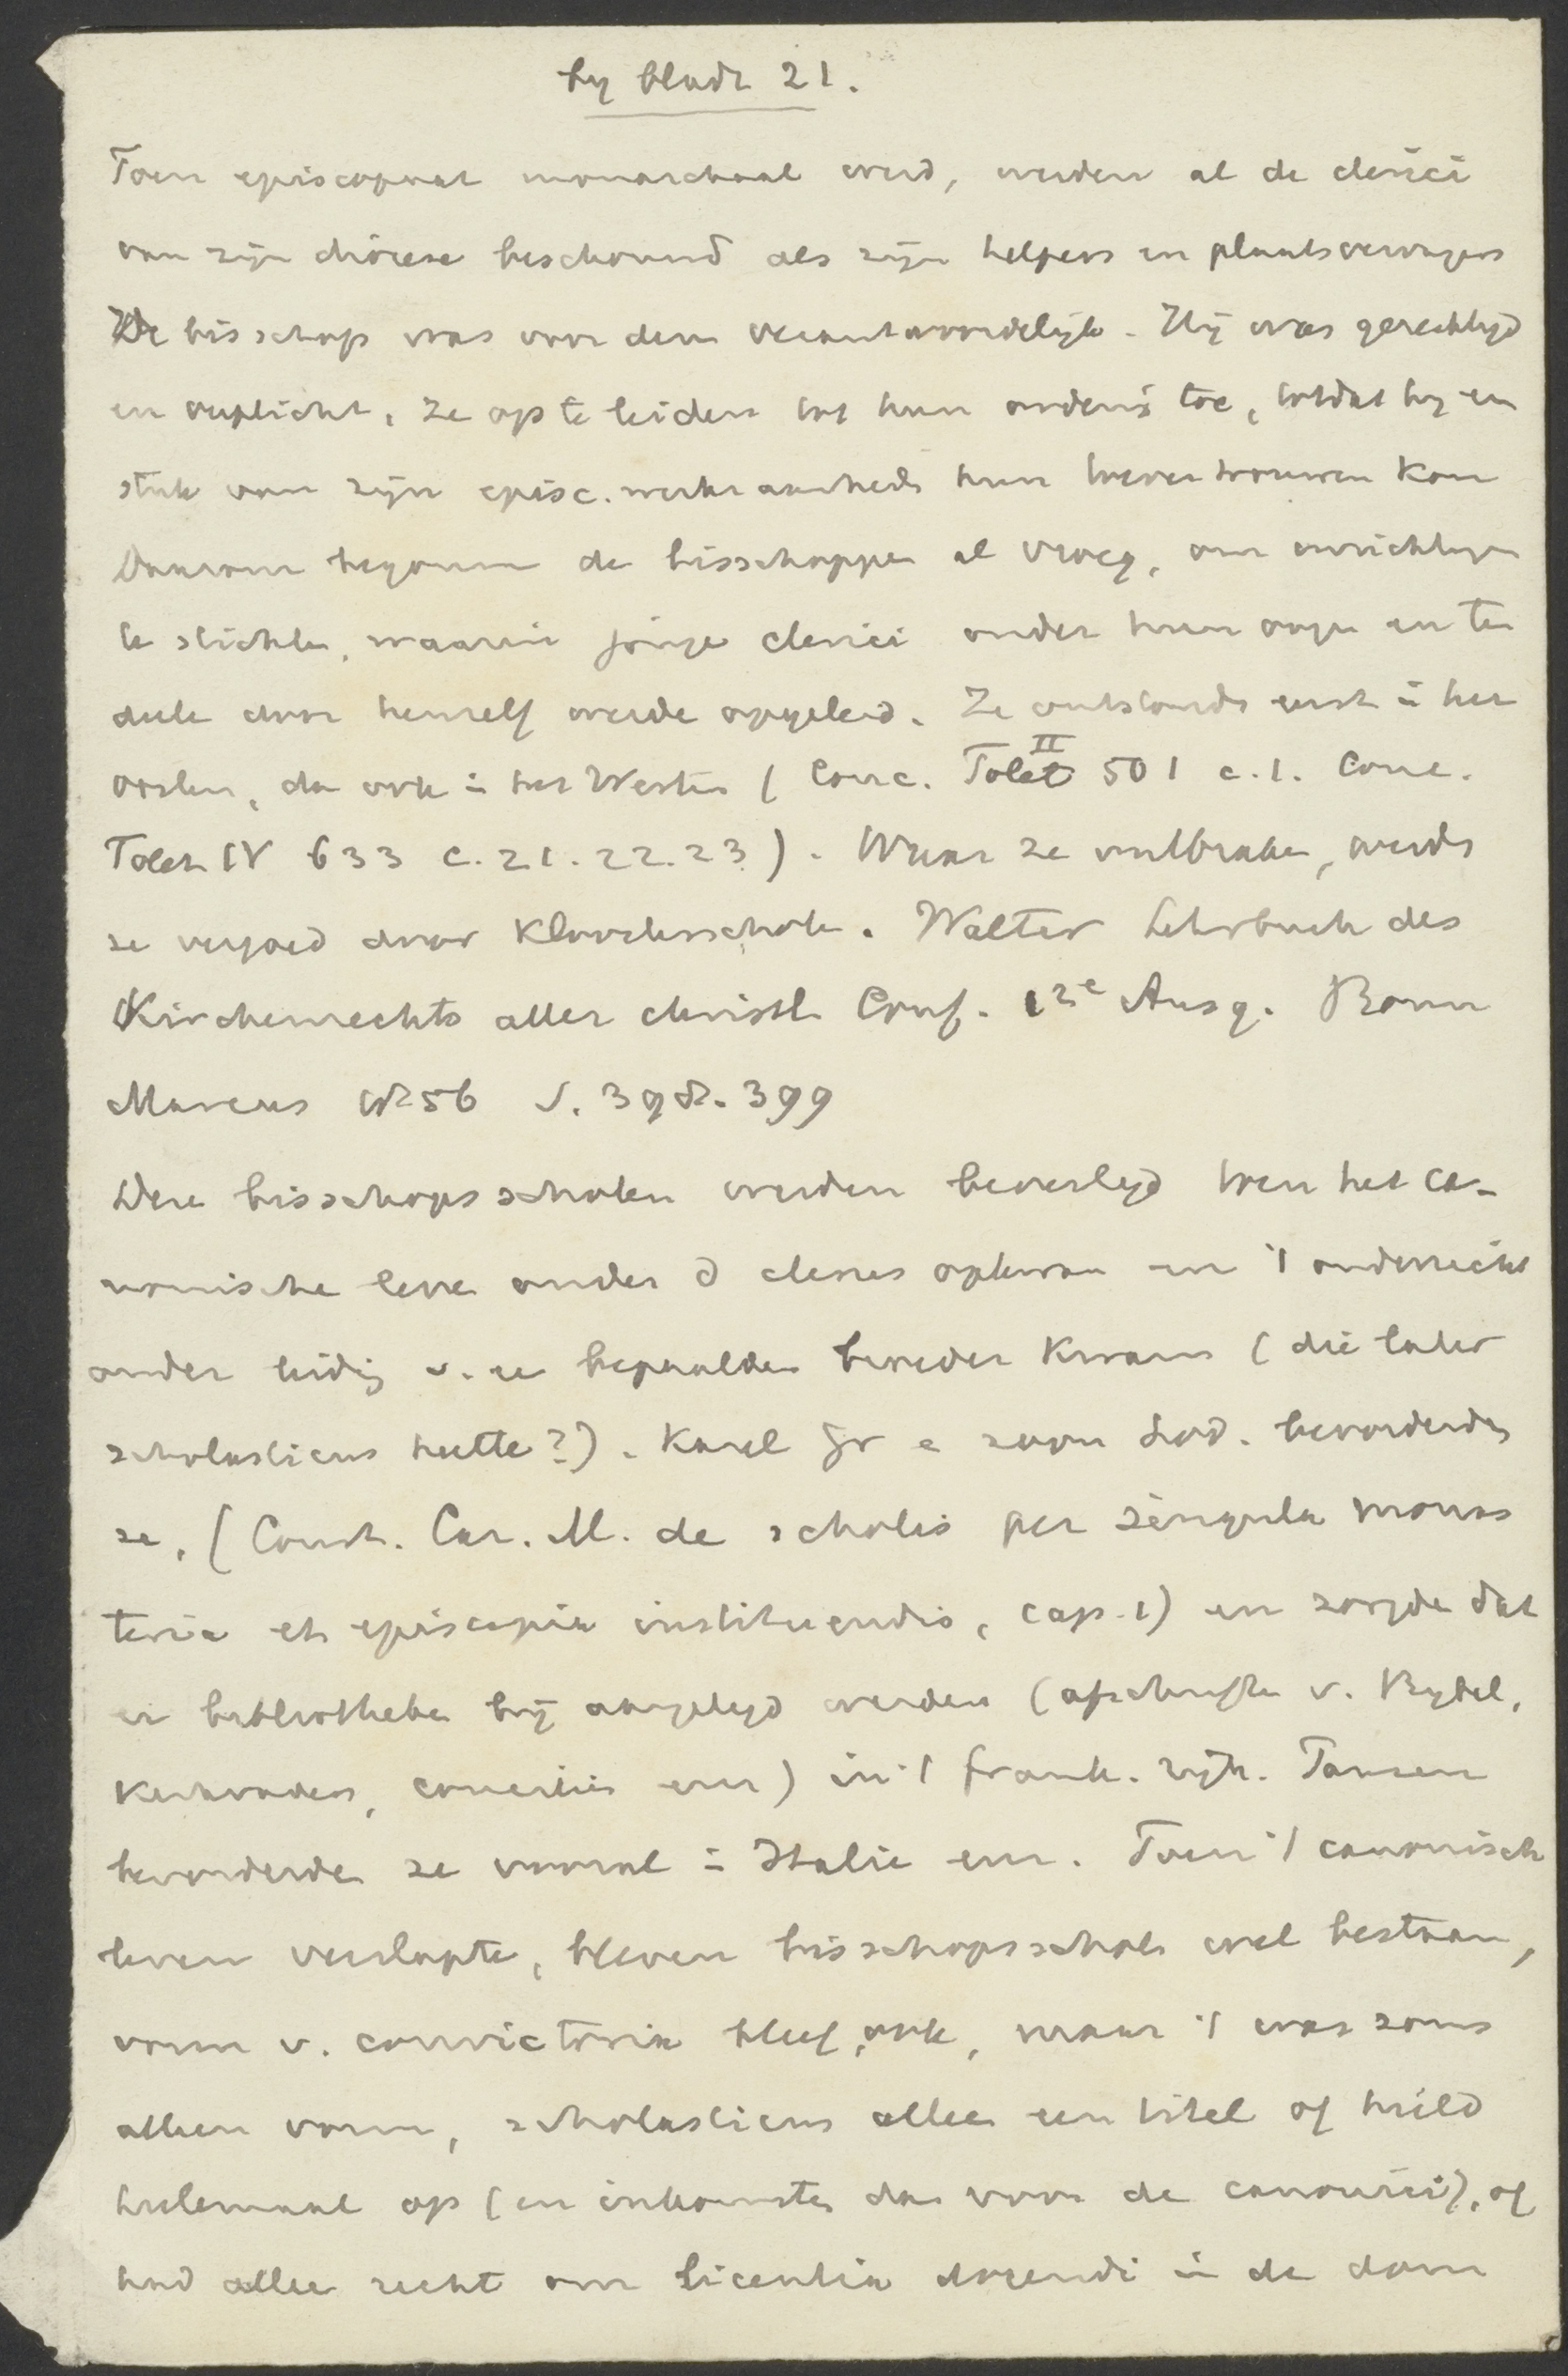 by bladz 21.
Toen episcopaat monarchaal werd, werden al de clerici
van zijn diörese beschouwd als zijn helpers en plaatsvervagers
De bisschop was voor dien verantwoordelijk. Hij was gerechtigd
en verplicht, ze op te leiden tot hun orden's toe, totdat hij een
stuk van zijn episc. werkzaamheds hun toevertrouwen kon
Daarom begonnen de bisschoppen al vroeg, om inrichtingen
te stichten, waarin jonge clerici onder hun oogen en ten
deele door hemzelf werden opgeleid. Ze ontstonden eerst in het
oosten, dan ook in het Westen (Conc. Tolet II 501 c.1. Conc.
Tolet IV 633 c. 21. 22. 23). Waar ze ontbraken, werdn
ze vergoed door kloosterscholen. Walter Lehrbuch des
Kirchenrechts aller christl Conf. 12e Ausg. Bonn
Marcus 1856 S. 398. 399
Deze bisschopsscholen werden bevestigd toen het ca-
nonische leven onder d clerus opkwam en 't onderricht
onder leidig v. een bepaalden broeder kwam (die later
scholasticus heette?). Karel Gr e zoon Lod. bevorderdn
ze, (Const. Car. M. de scholis per singula monas
teria et episcopia instituendis, cap. 1) en zorgde dat
er bibliotheken bij aangelegd werden (afschriften v. Bijbel,
kerkvaders, conciliën enz) in 't frank. rijk. Pausen
bevorderden ze vooral in Italie enz. Toen 't canonisch
leven verslapte, bleven bisschopsscholn wel bestaan,
vorm v. convictoria bleef ook, maar 't was soms
alleen vorm, scholasticus alleen een titel of hield
heelemaal op (en inkomsten dan voor de canonici), of
had alleen recht om licentia docendi in de dom